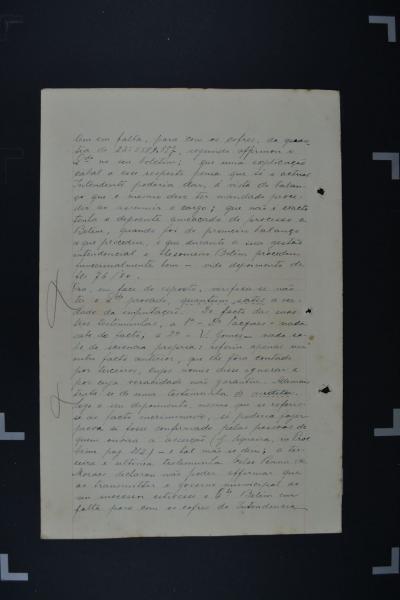 tem em falta, para com os cofres, da quan-
tia de segundo affirmou o
no seu boletim; que uma explicação
cabal a esse respeito pensa que só o actual
Intendente poderia dar, á vista do balan-
ço que o mesmo deve ter mandado proce-
der ao assumir o cargo; que não é exacto
tenha o depoente ameaçado de processo a
Belém, quando foi do primeiro balanço
a que procedeu, e que durante a sua gestão
intendencial o thesoureiro Belém procedeu
bem — vide depoimento de
fls 76 / 80.
Ora, em face do exposto, verifica-se não
ter o provado, quantum satis a ver-
dade da imputação. De facto das suas
tres testemunhas, a 1ª — nada
sabe de facto; a 2ª — V. Gomes — nada sa-
be de sciencia propria: refere apenas um
outro facto anterior, que lhe fôra contado
por terceiros, cujos nomes disse ignorar e
por cuja veracidade não garante.
trata-se de uma testemunha de auditu.
Logo o seu depoimento, mesmo que se referis-
se ao facto incriminado, só poderia fazer
prova se fosse confirmado pelas pessôas de
quem ouvira a asserção
pag 212) — o tal não se deu; a ter-
ceira e ultima testemunha
Moraes declarou não poder affirmar que
ao transmittir o governo municipal ao
seu successor estivesse o Belém em
falta para com os cofres da Intendencia